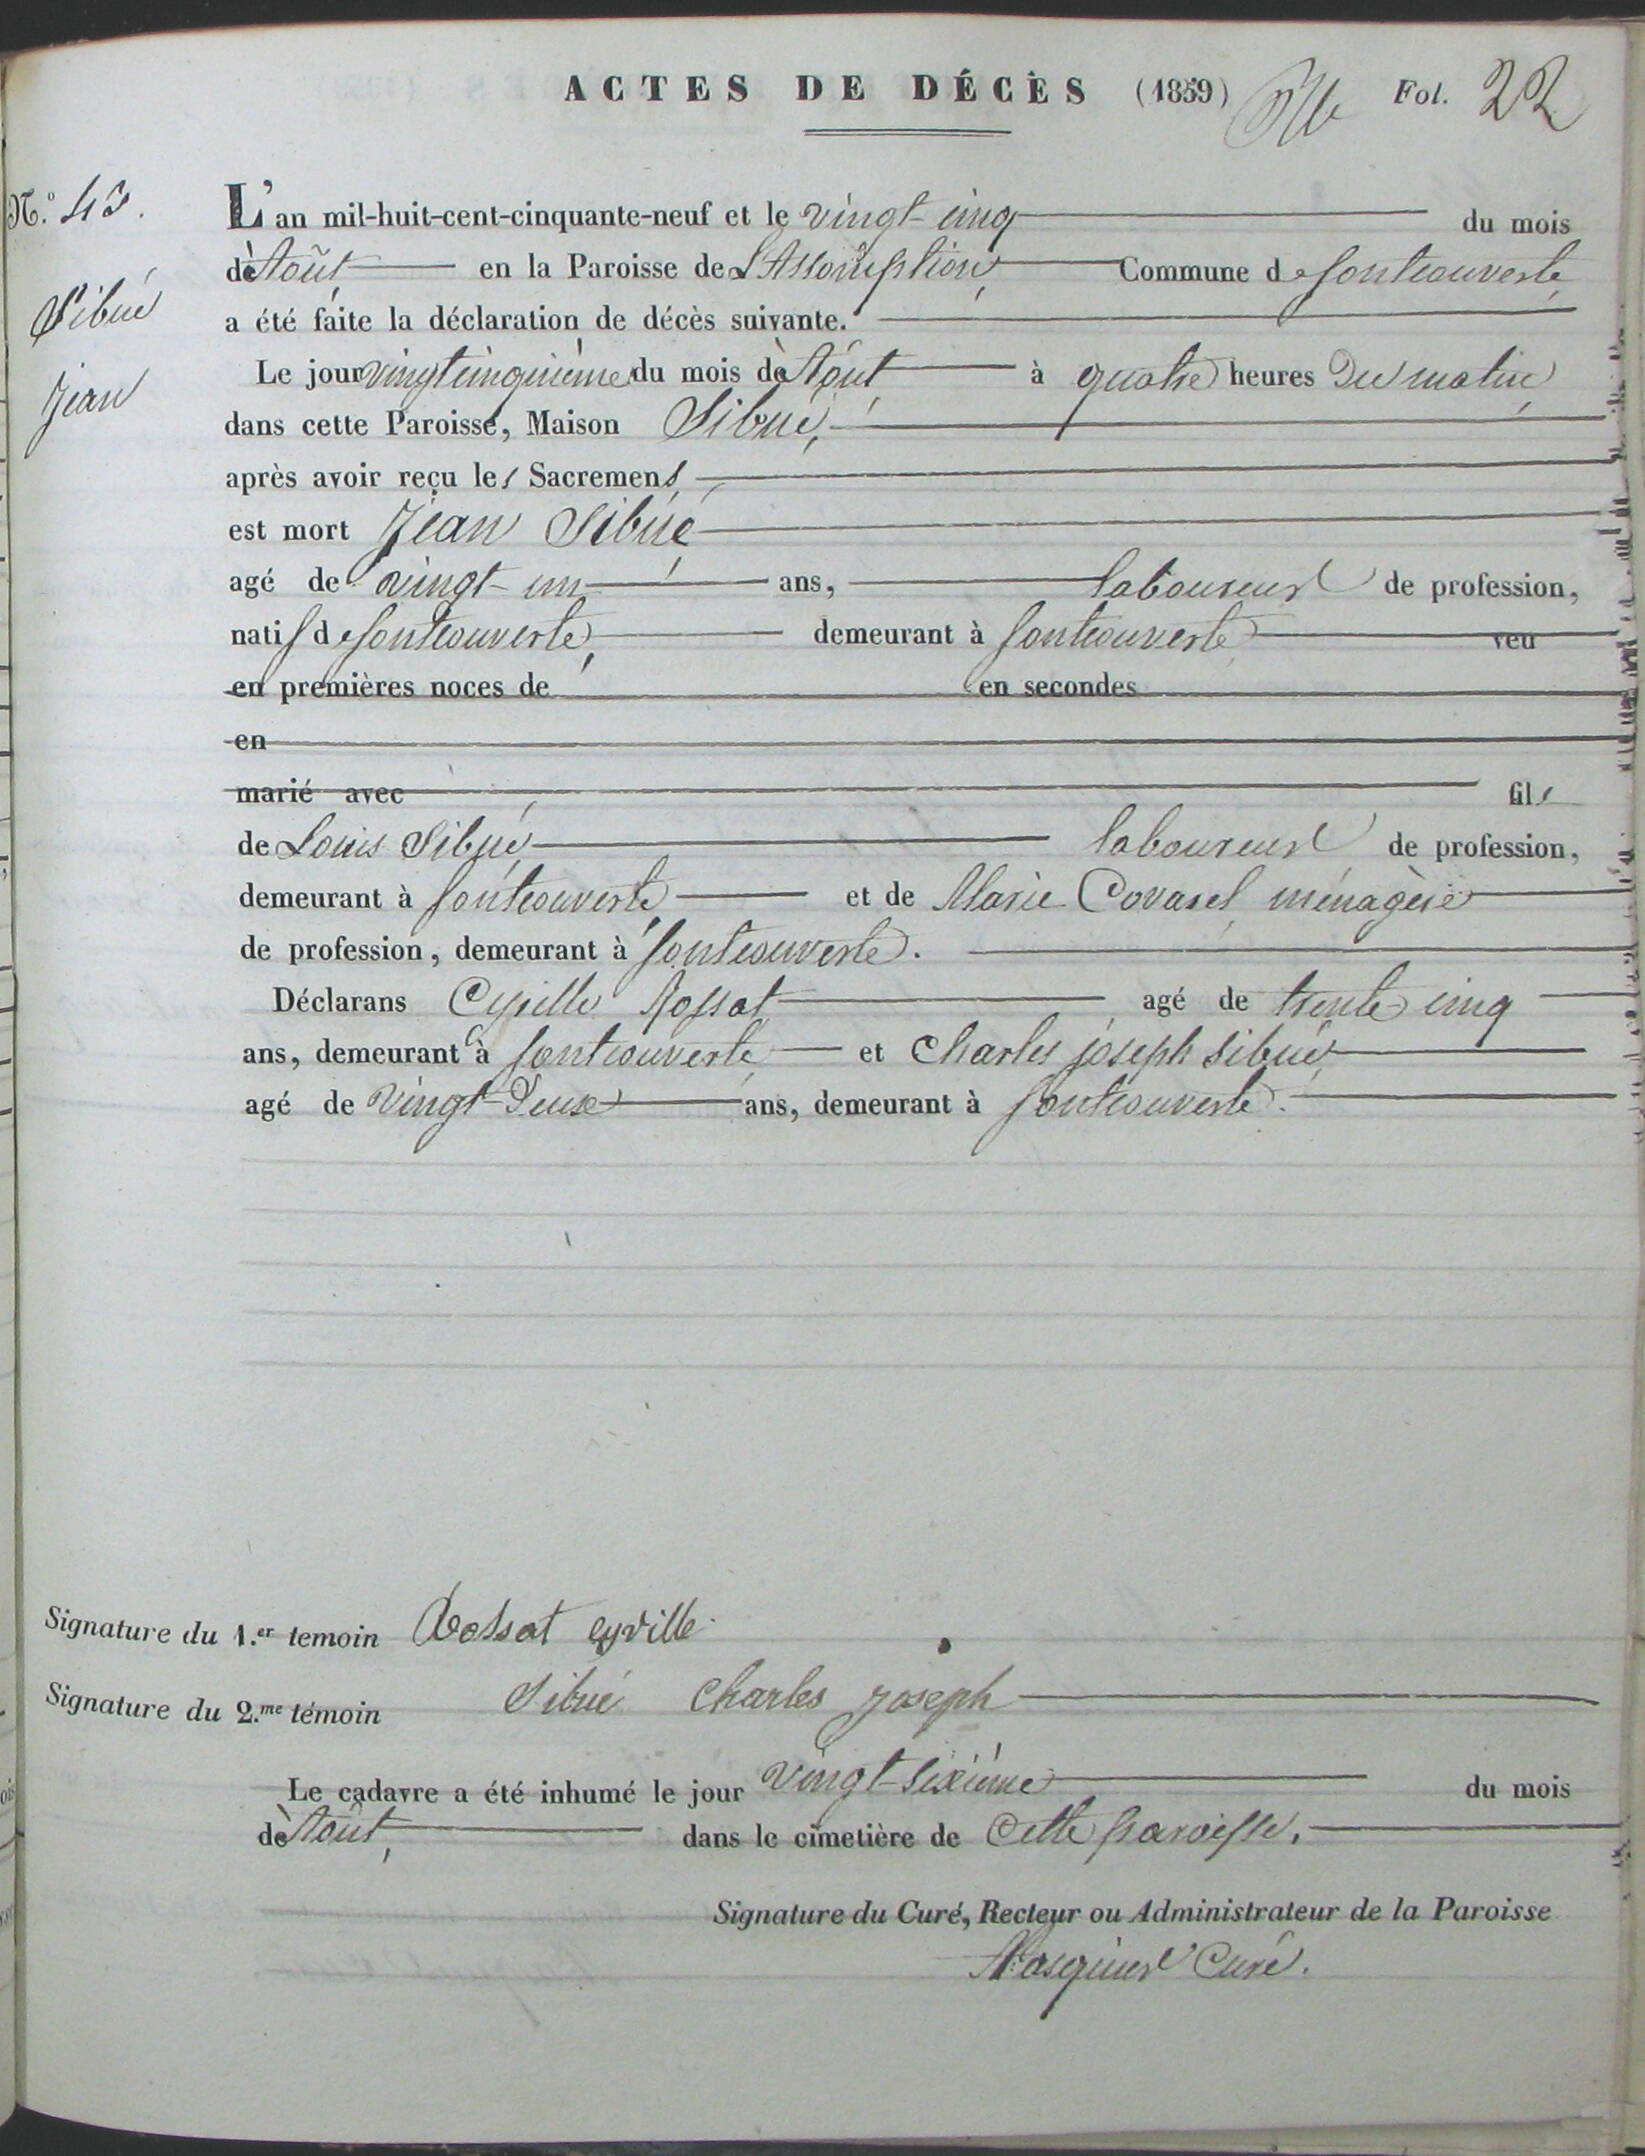 ACTES DE DÉCÈS (1859) Fol. 22
N.° 43.
L'an mil-huit-cent-cinquante-neuf et le vingt-cinq du mois
d'Août en la Paroisse de L'Assomption, Commune de fontcouverte,
Sibué
a été faite la déclaration de décès suivante.
Jean
Le jour vingt cinquième du mois d'Août à quatre heures du matin,
dans cette Paroisse, Maison Sibué,
après avoir reçu les Sacremens,
est mort Jean Sibué
agé de vingt-un ans, laboureur de profession,
natif de fontcouverte, demeurant à fontcouverte veu
en premières noces de en secondes
en
marié avec fils
de Louis Sibué laboureur de profession,
demeurant à fontcouverte et de Marie Covarel ménagère
de profession, demeurant à fontcouverte.
Déclarans Cyrille Rossat agé de trente cinq
ans, demeurant à fontcouverte et Charles joseph Sibué,
agé de vingt-deux ans, demeurant à fontcouverte.
Signature du 1.er temoin Rossat cyrille
Signature du 2.me témoin Sibué Charles joseph
Le cadavre a été inhumé le jour vingt-sixième du mois
d'Août, dans le cimetière de cette paroisse.
Signature du Curé, Recteur ou Administrateur de la Paroisse
Curé.